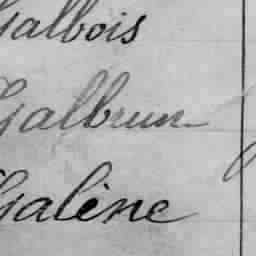 Galbois
Galbrun
Galène